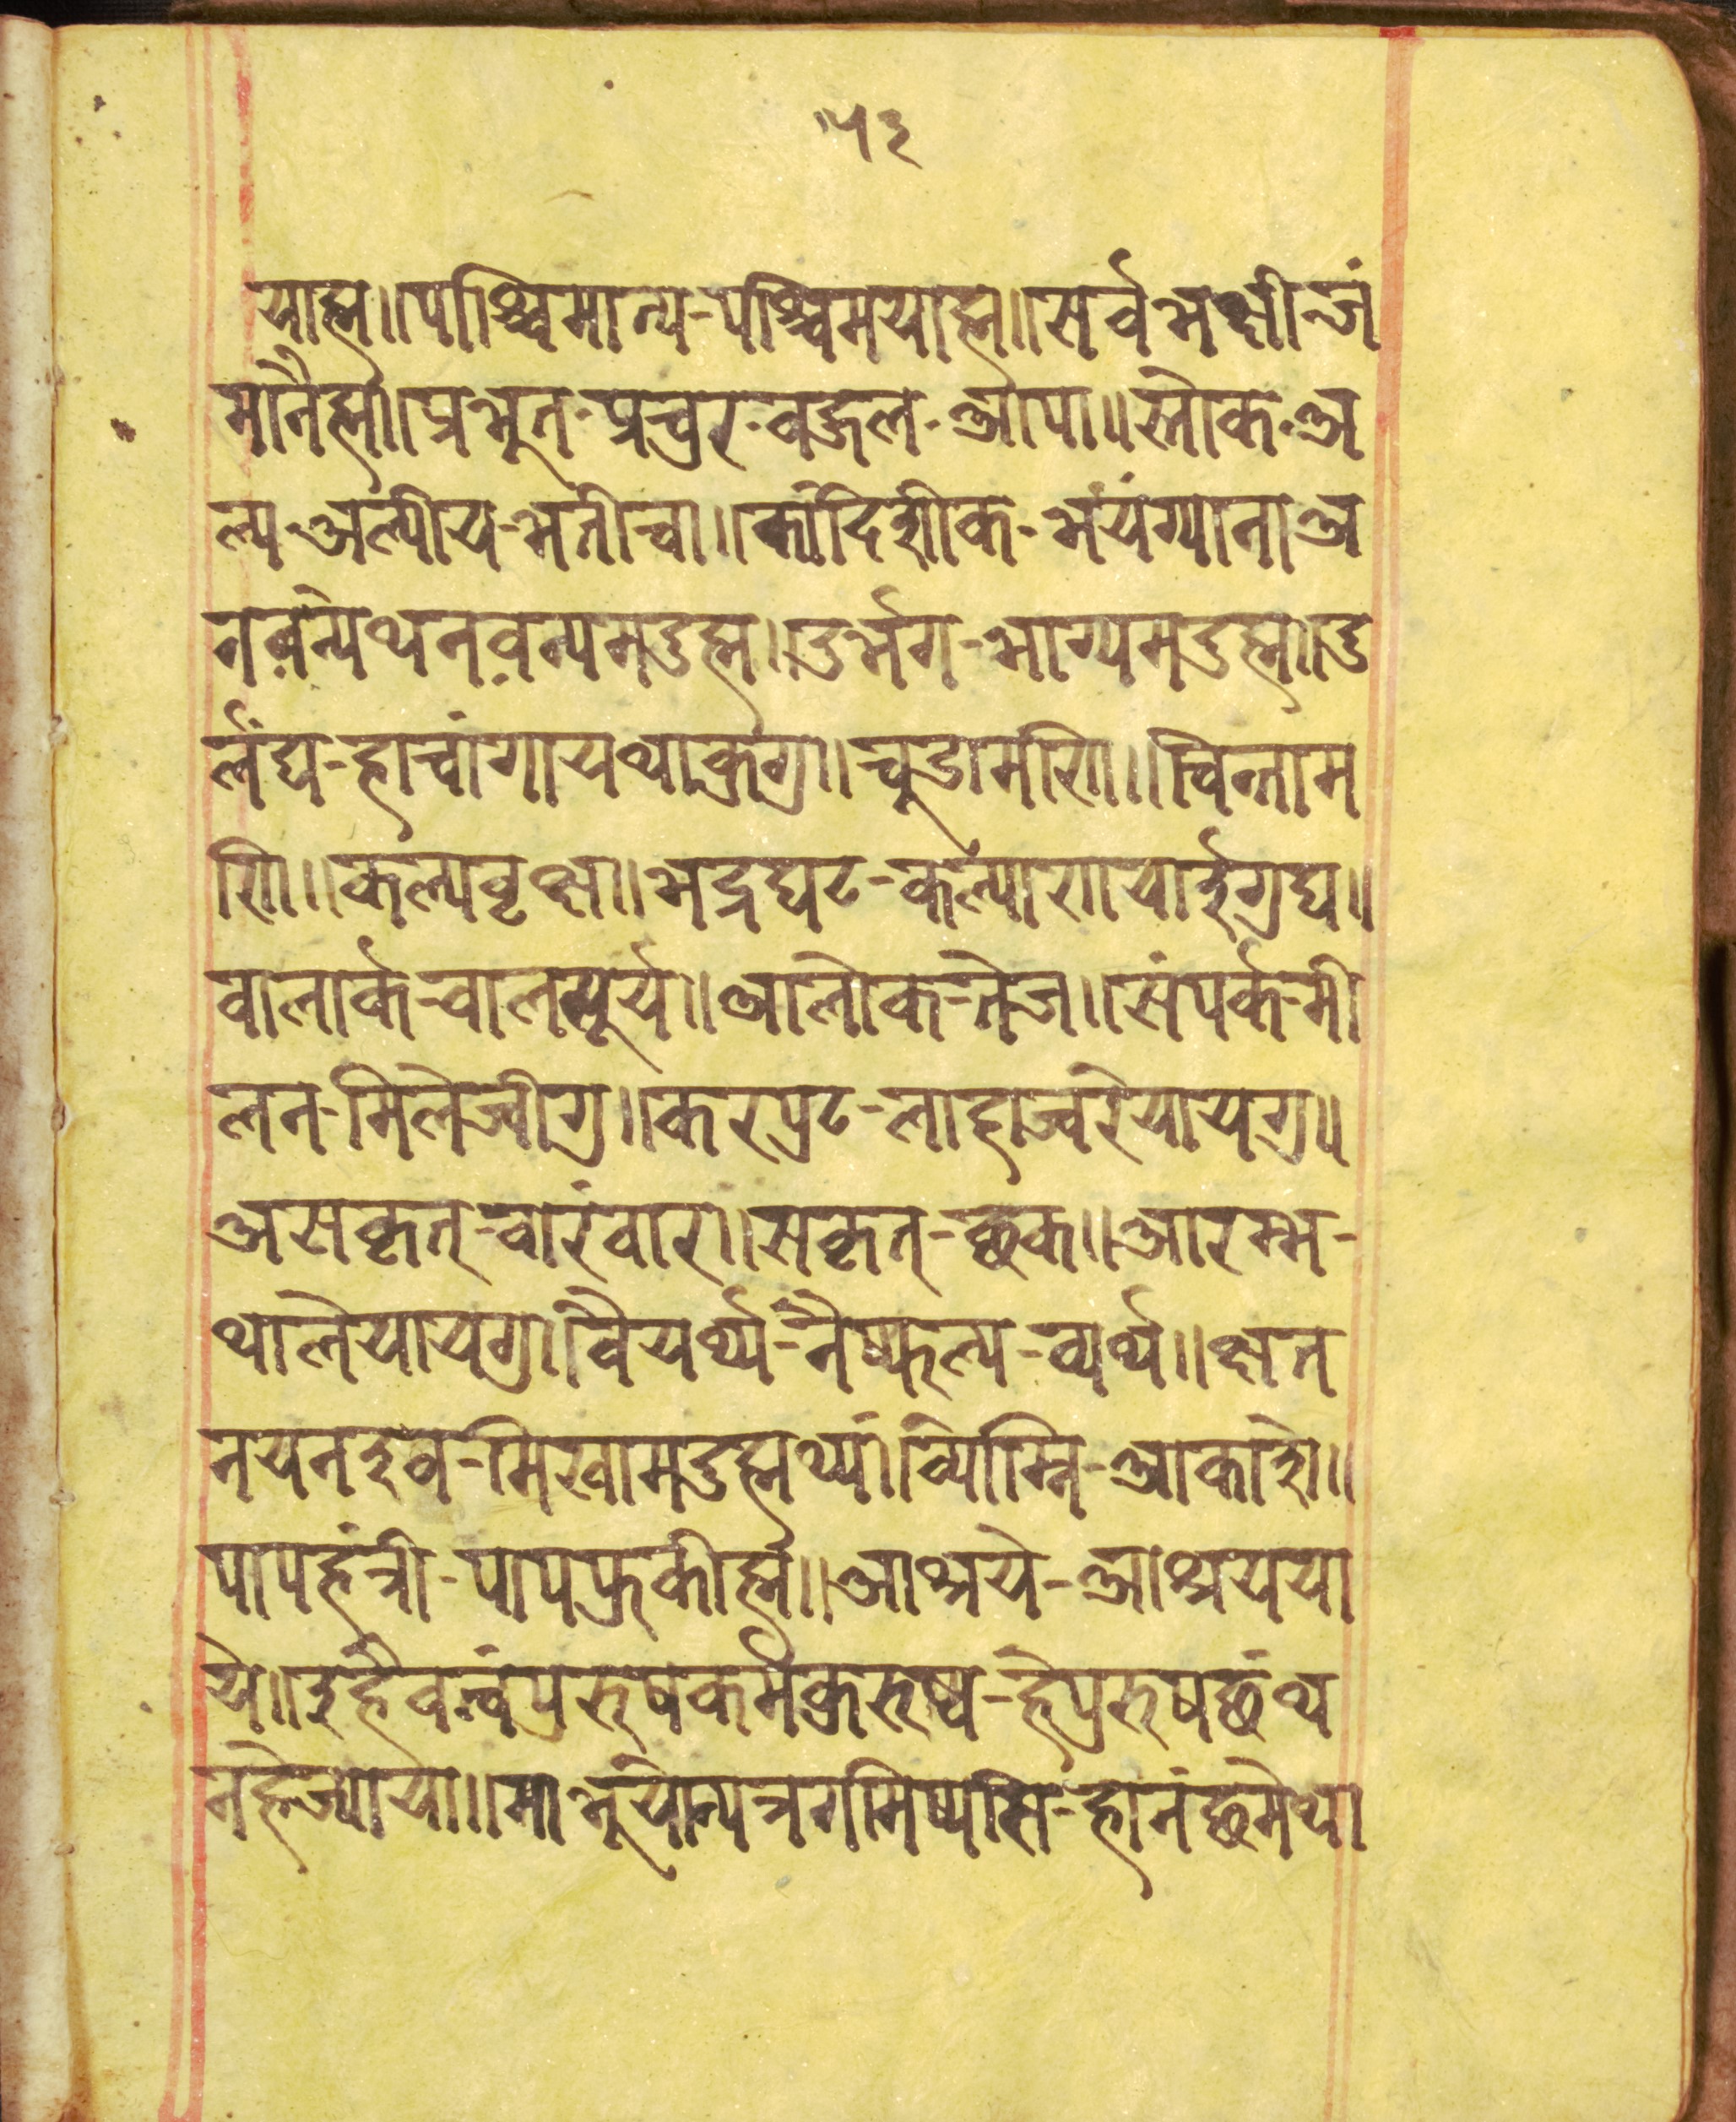 ५३
याह्म॥पाश्चिमात्य-पश्चिमयाह्म॥सर्वभक्षीन्जं
मानैह्म॥प्रभूत-प्रचुर-वहुल-आपा॥स्तोक-अ
ल्प-अल्पीय-भतीचा॥कांदिशीक-भयंग्याना अ
नवन्यथनवन्यमदुह्म॥दुर्भग-भाग्यमदुह्म॥दु
र्लंघ्य-हाचांगायथाकुगु॥चुडामणि॥चिन्ताम
णि॥कल्पवृक्ष॥भद्रघट-कल्पाणयाईगुघ॥
वालार्क-वालसूर्य॥आलोक-तेज॥संपर्क-मी
लन-मिलेज्वीगु॥करपुट-लाहाज्वरेयायगु॥
असकृत्-वारंवार॥सकृत्-छक॥आरम्भ-
थालेयायगु॥वैयर्थ्य-नैष्फल्य-व्यर्थ॥क्षत
नयनइव-मिखामदुह्मथ्यं॥व्योम्नि-आकाशे॥
पापहंत्री-पापफुकीह्म॥आश्रये-आश्रयया
ये॥इहैवत्वंपुरुषकर्मकुरुष्व-हेपुरुषछंथ
नहेज्याया॥माभूयोन्यत्रगमिष्यसि-हानंछमेथा